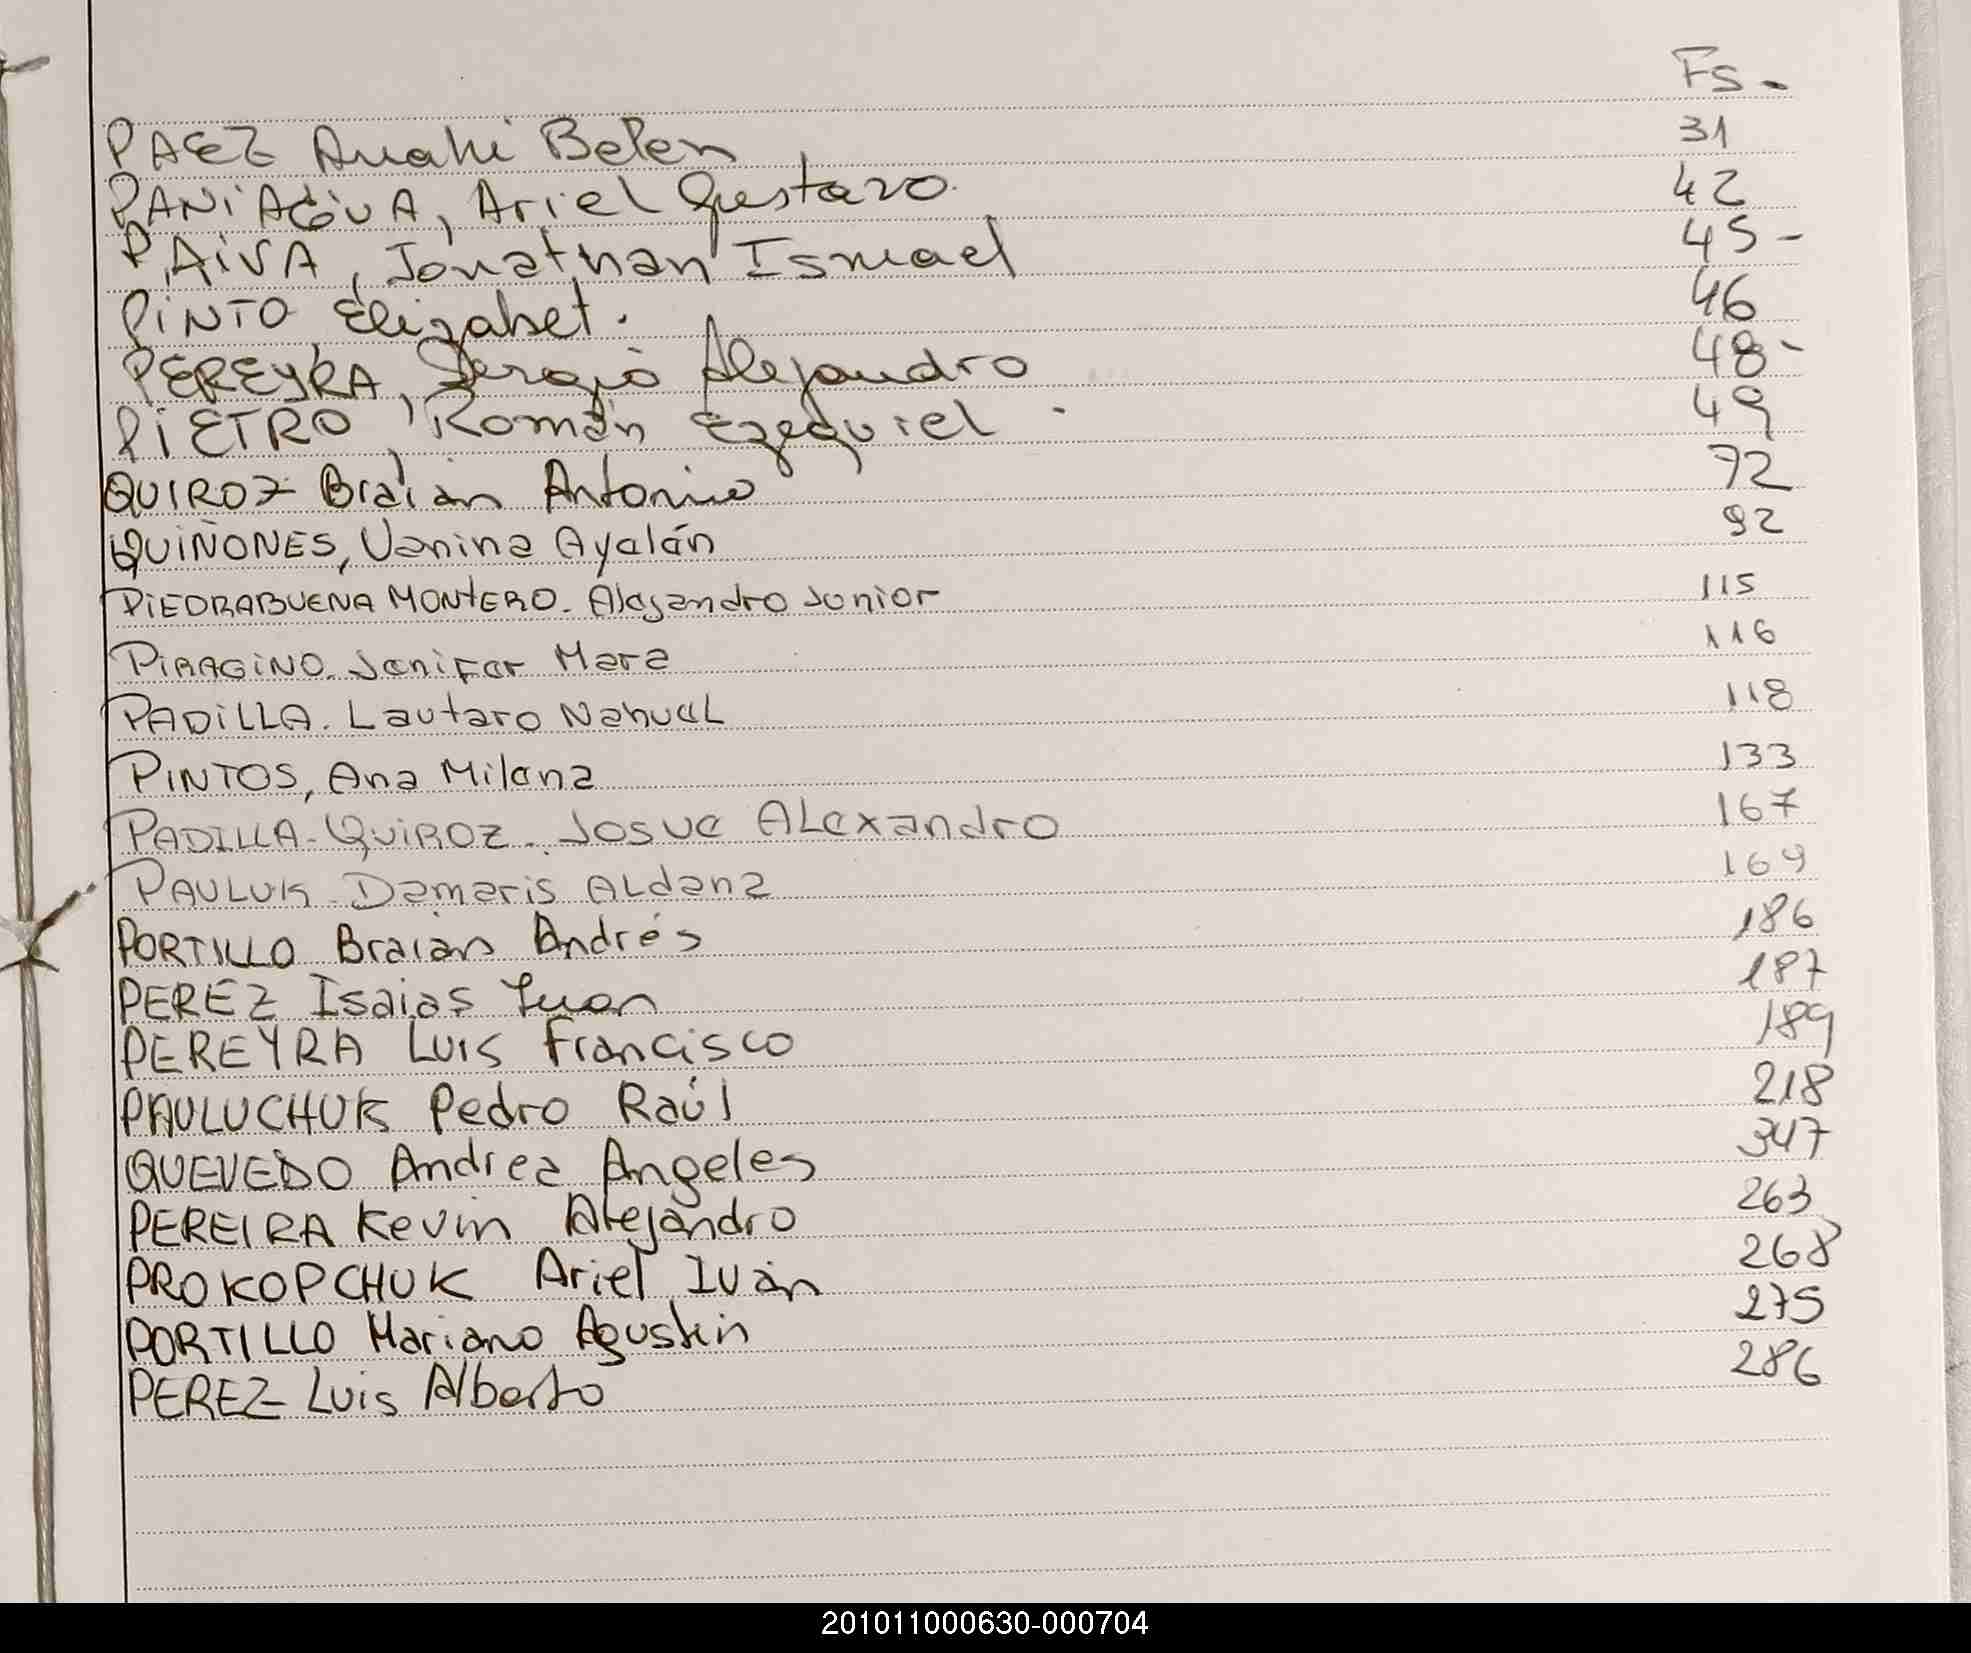 Fs-
PAEZ Anahi Belen 31
PANIAGUA, Ariel Gustavo. 42
PAIVA, Jonathan Ismael 45-
PINTO Elizabet. 46
PEREYRA, Sergio Alejandro 48-
PIETRO, Román Ezequiel - 49
QUIROZ Braian Antonio 72
QUIÑONES, Vanina Ayalán 92
PIEDRABUENA MONTERO. Alejandro Junior 115
PIRAGINO. Jenifer Mara 116
PADILLA. Lautaro Nahuel 118
PINTOS, Ana Milena 133
PADILLA-QUIROZ. Josue Alexandro 167
PAULUK-Damaris Aldana 169
PORTILLO Braian Andrés 186
PEREZ Isaias Juan 187
PEREYRA Luis Francisco 189
PAULUCHUK Pedro Raúl 218
QUEVEDO Andrea Angeles 347
PEREIRA Kevin Alejandro 263
PROKOPCHUK Ariel Iván 268
PORTILLO Mariano Agustin 275
PEREZ Luis Alberto 286
201011000630-000704